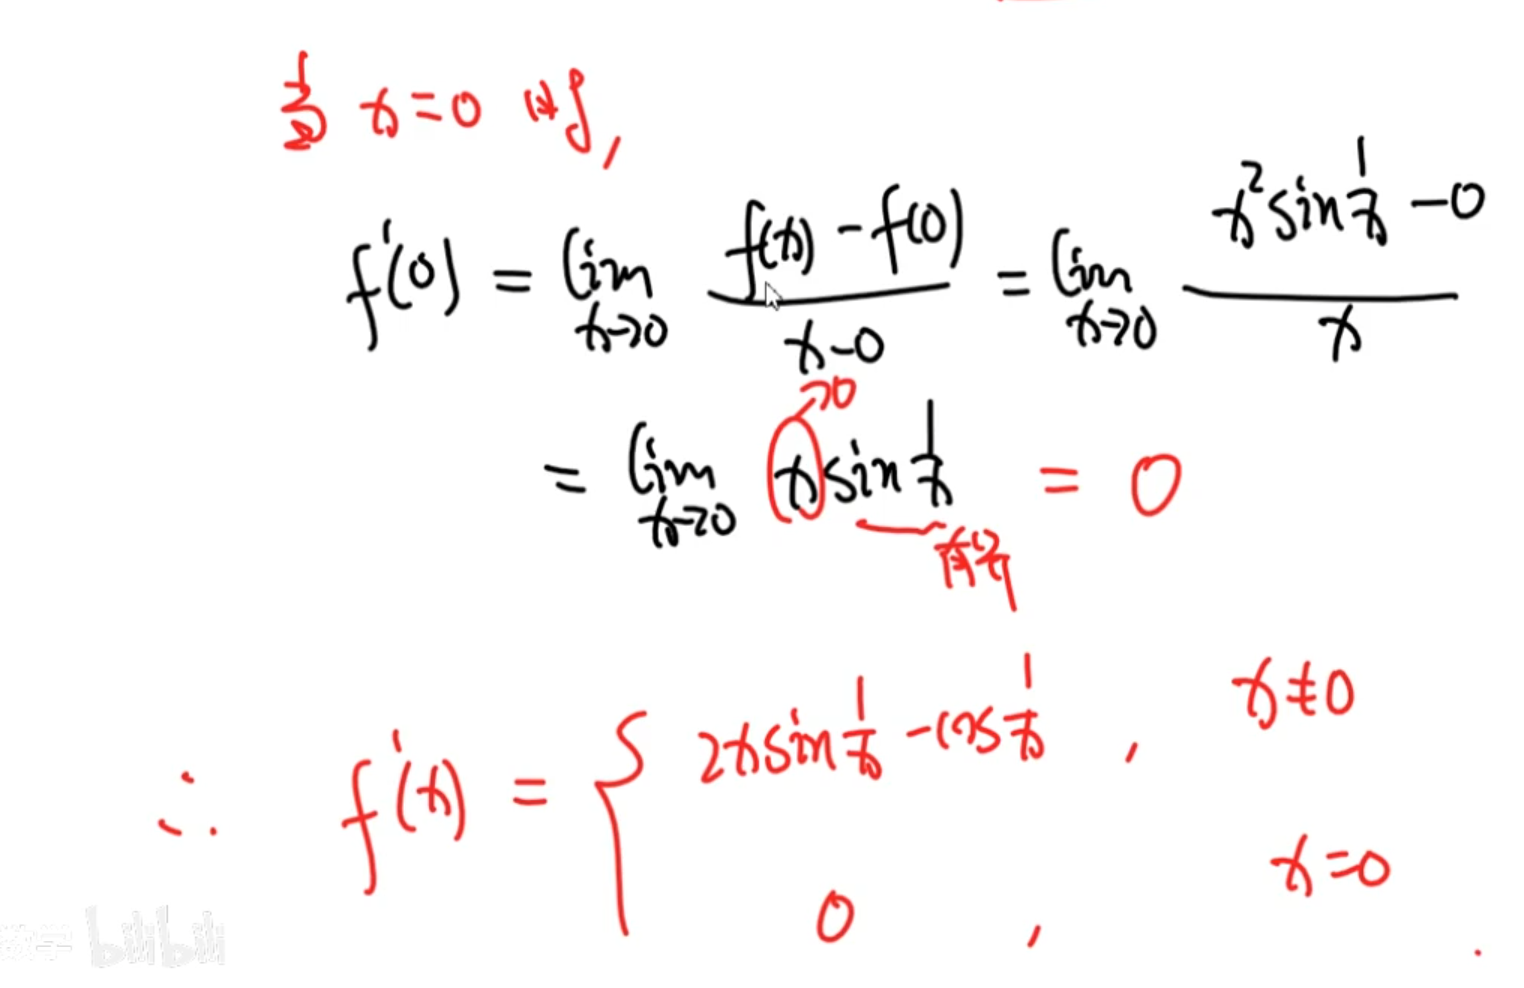 当 x=0 时,
f'(0) = lim x→0 f(x)-f(0) / x-0 = lim x→0 x² sin 1/x -0 / x
= lim x→0 x sin 1/x = 0
→0
有界
∴ f'(x) = { 2x sin 1/x - cos 1/x , x≠0
0 , x=0 .
数学 bilibili